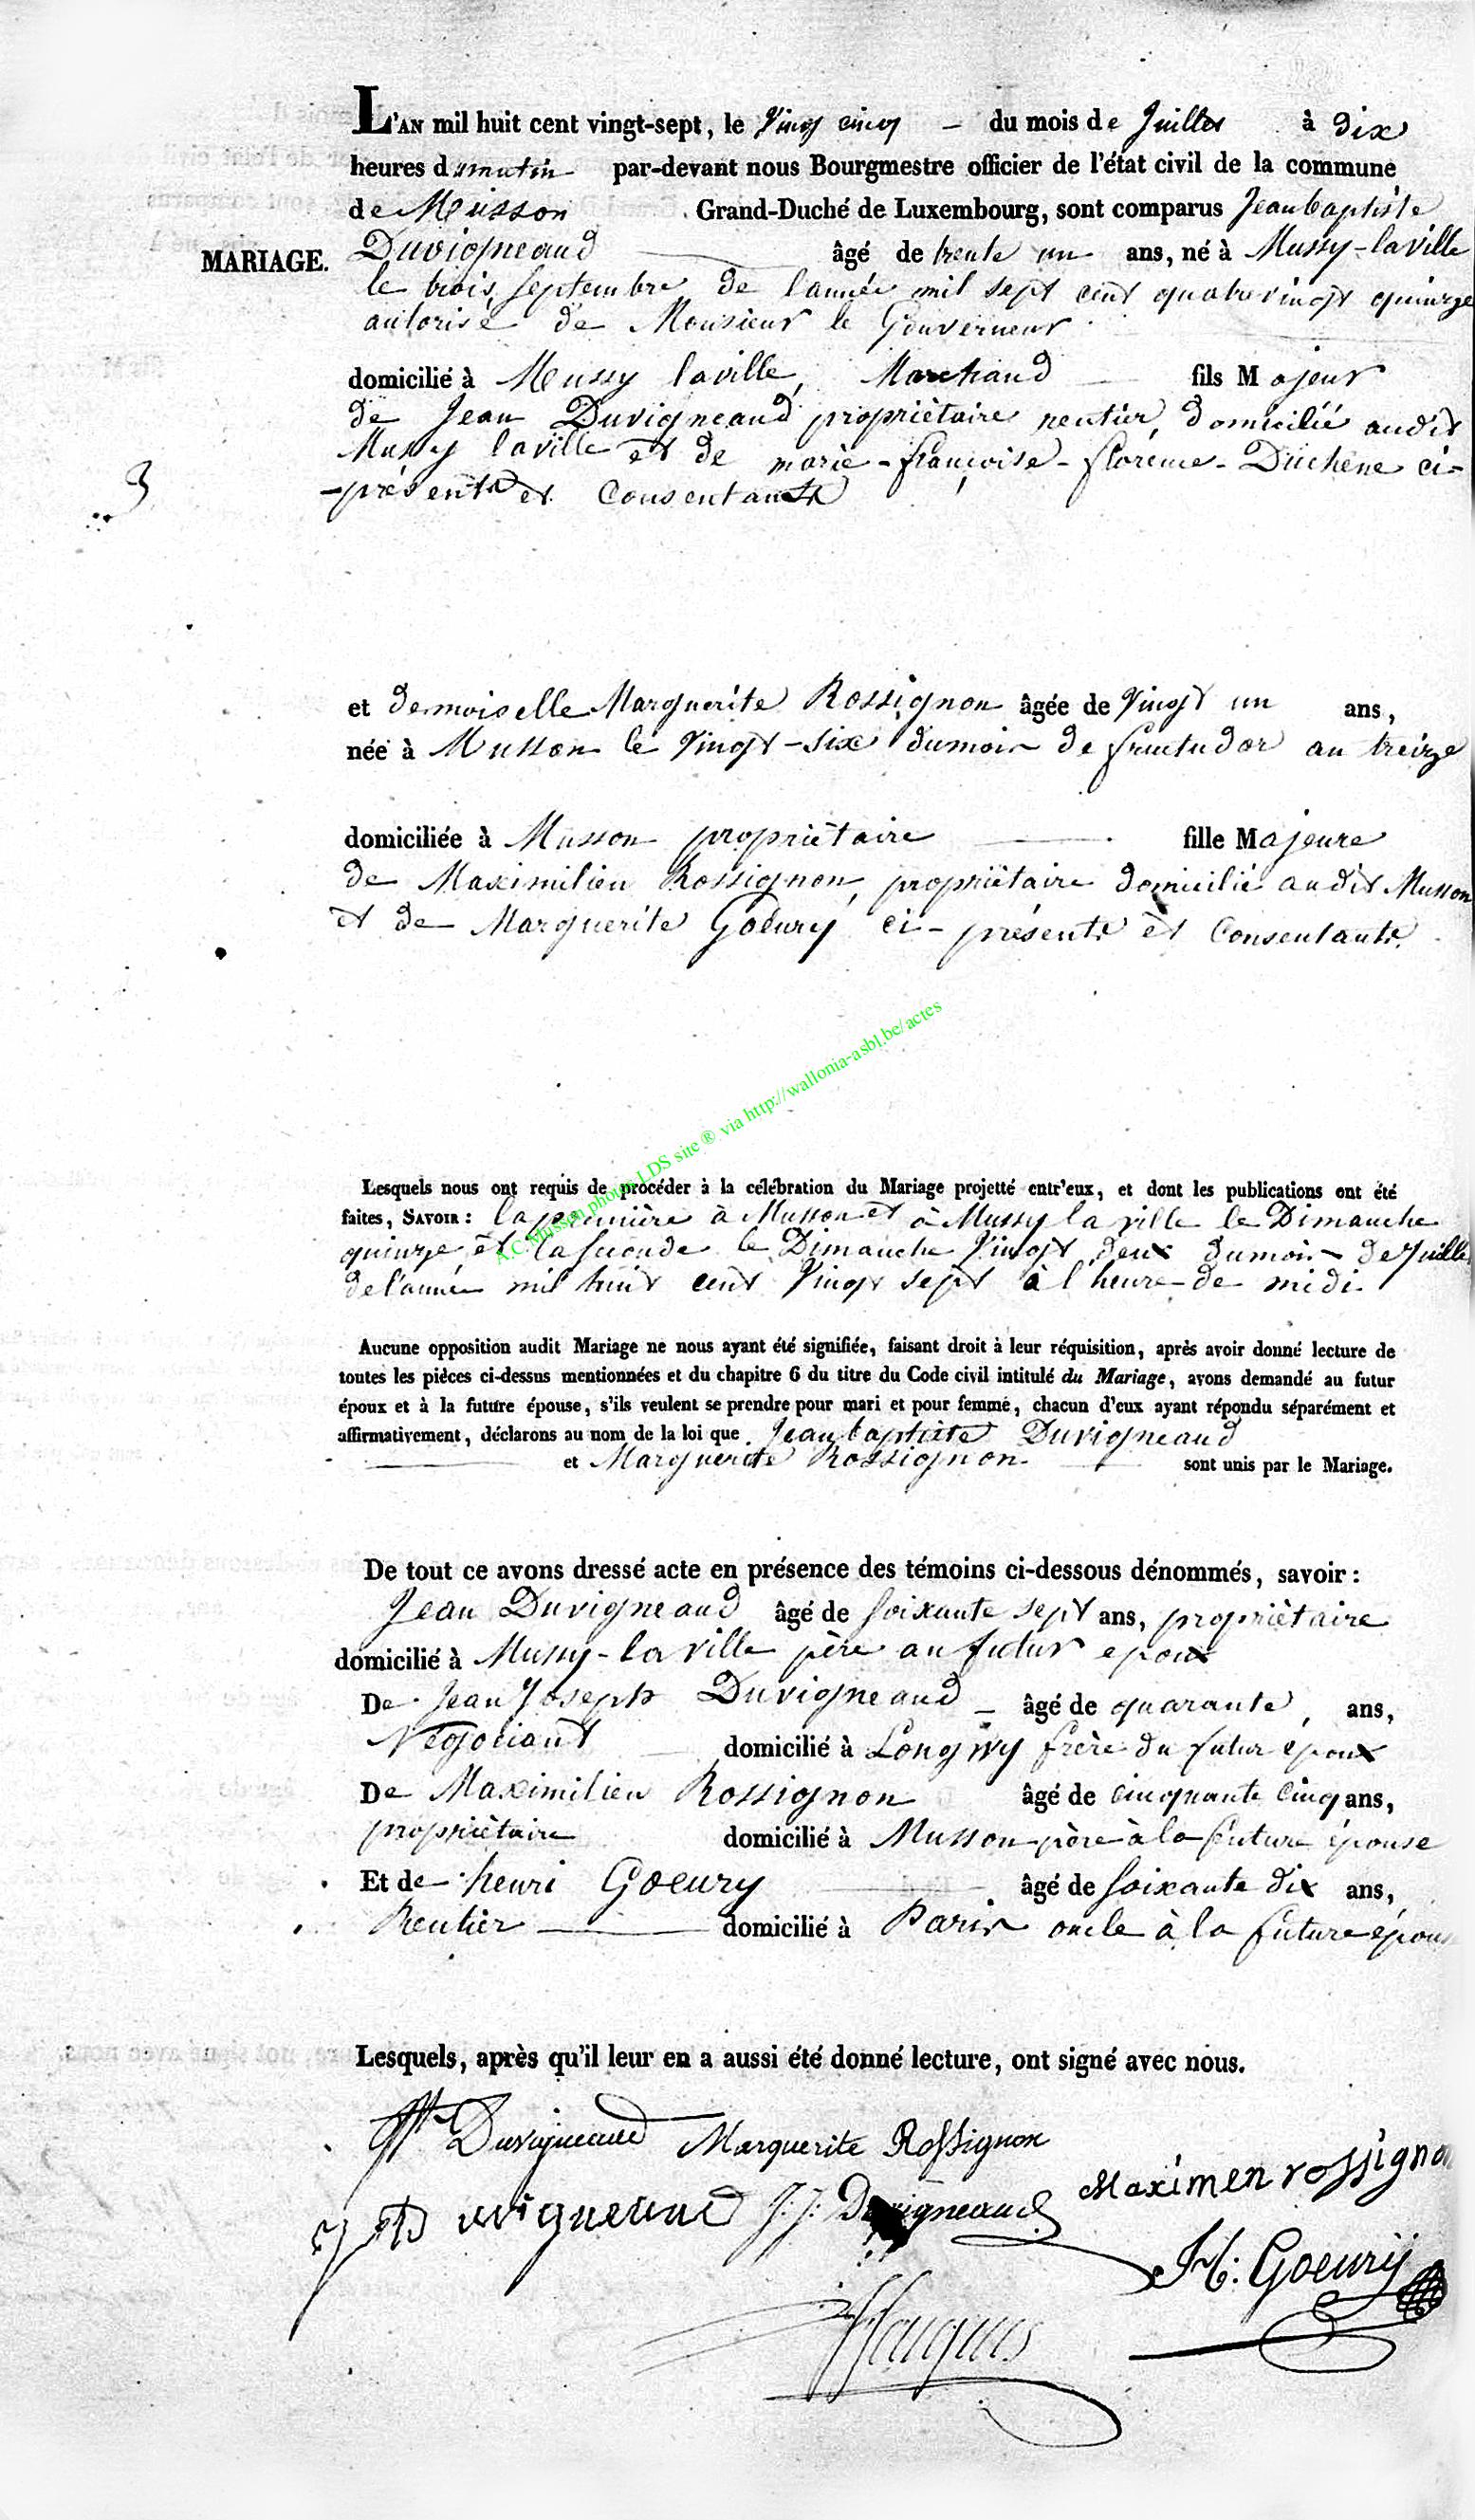 L'AN mil huit cent vingt-sept, le Vingt cinq – du mois de Juillet à dix
heures du matin par-devant nous Bourgmestre officier de l'état civil de la commune
de Musson Grand-Duché de Luxembourg, sont comparus Jean baptiste
MARIAGE. Duvigneaud âgé de trente un ans, né à Mussy-laville
le trois Septembre de l'année mil sept cent quatrevingt quinze
autorisé de Monsieur le Gouverneur
domicilié à Mussy laville, Marchand fils Majeur
de Jean Duvigneaud propriétaire rentier, domicilié audit
Mussy laville et de marie-françoise-florence-Duchene ci-
3
-présents et Consentants
et demoiselle Marguerite Rossignon âgée de Vingt un ans,
née à Musson le Vingt-six dumois de fructudor an treize
domiciliée à Musson propriétaire fille Majeure
de Maximilien Rossignon, propriétaire domicilié audit Musson
et de Marguerite Goeury ci-présents et Consentants
A.C. Musson photos LDS site ® via http://wallonia-asbl.be/actes
Lesquels nous ont requis de procéder à la célébration du Mariage projetté entr'eux, et dont les publications ont été
faites, SAVOIR : la première à Musson et à Mussy la ville le Dimanche
quinze et la seconde le Dimanche Vingt deux dumois de Juillet
de l'année mil huit cent Vingt sept à l'heure de midi
Aucune opposition audit Mariage ne nous ayant été signifiée, faisant droit à leur réquisition, après avoir donné lecture de
toutes les pièces ci-dessus mentionnées et du chapitre 6 du titre du Code civil intitulé du Mariage, avons demandé au futur
époux et à la future épouse, s'ils veulent se prendre pour mari et pour femme, chacun d'eux ayant répondu séparément et
affirmativement, déclarons au nom de la loi que Jean baptiste Duvigneaud
et Marguerite Rossignon sont unis par le Mariage.
De tout ce avons dressé acte en présence des témoins ci-dessous dénommés, savoir :
Jean Duvigneaud âgé de Soixante sept ans, propriétaire
domicilié à Mussy-la ville père au futur epoux
De Jean Joseph Duvigneaud – âgé de quarante, ans,
Négociant domicilié à Longwy frère du futur epoux
De Maximilien Rossignon âgé de cinquante cinq ans,
propriétaire domicilié à Musson père à la future épouse
Et de henri Goeury âgé de Soixante dix ans,
Rentier domicilié à Paris oncle à la future épouse
Lesquels, après qu'il leur en a aussi été donné lecture, ont signé avec nous.
Duvigneaud Marguerite Rossignon
Maximen rossignon
J.J. Duvigneaud
H: Goeury